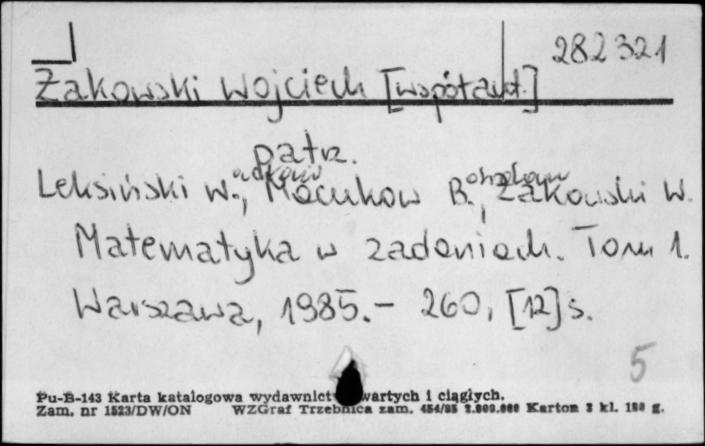 282321
Żakowski Wojciech [współaut.]
patrz.
Leksiński W., Macukow B., Żakowski W.
Matematyka w zadaniach. Tom 1.
Warszawa, 1985.- 260, [12] s.
5
Pu-B-143 Karta katalogowa wydawnict wartych i ciągłych.
Zam. nr 1523/DW/ON WZGraf Trzebnica zam. 454/85 2.000.000 Karton 3 kl. 180 g.